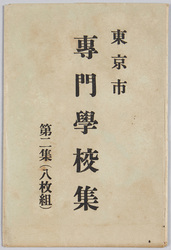 東京市
專門學校集
第二集(八枚組)